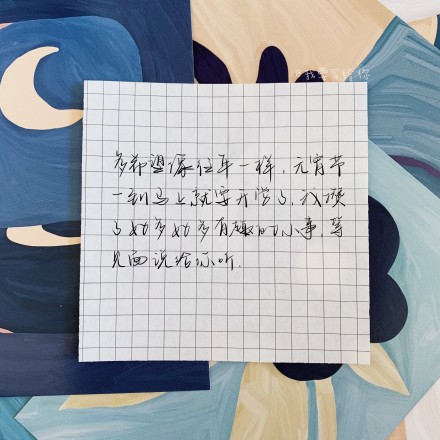 多希望像往年一样，元宵节
一到马上就要开学了，我攒
了好多好多有趣的小事，等
见面说给你听.